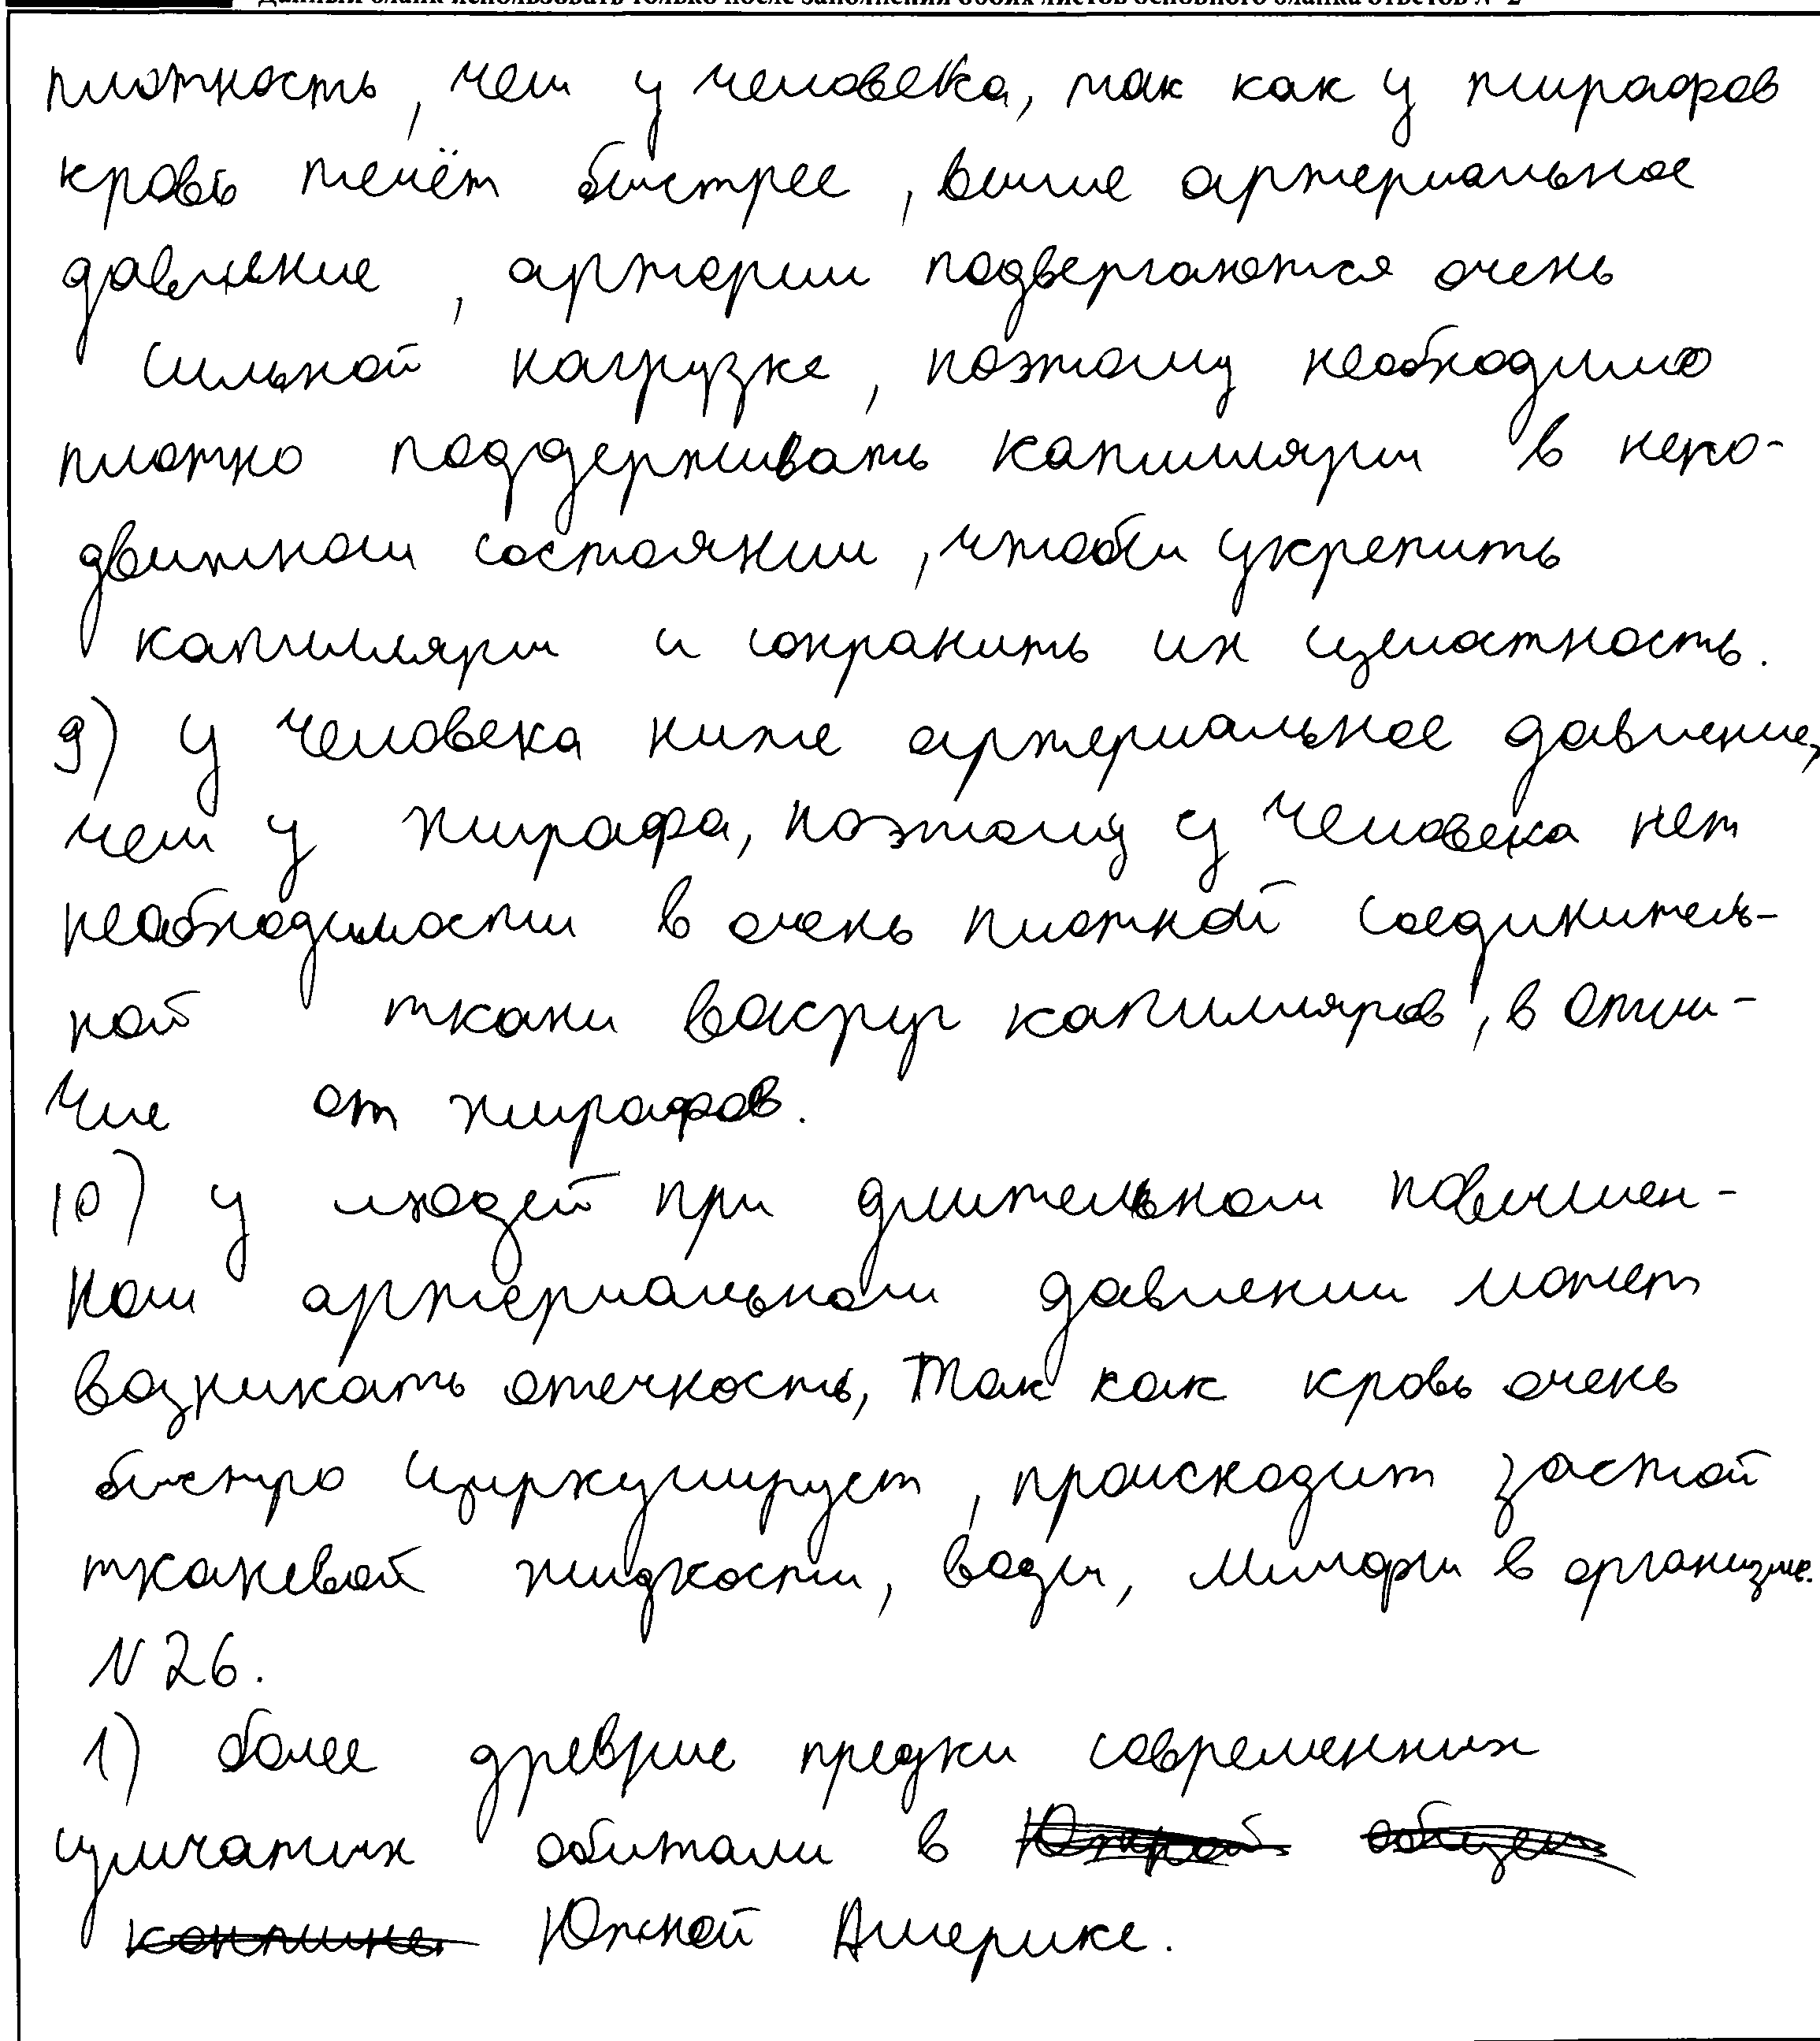 Данный бланк использовать только после заполнения обоих листов основного бланка ответов № 2
плотность, чем у человека, так как у жирафов
кровь течёт быстрее, выше артериальное
давление, артерии подвергаются очень
сильной нагрузке, поэтому необходимо
плотно поддерживать капилляры в непо-
движном состоянии, чтобы укрепить
капилляры и сохранить их целостность.
9) У человека ниже артериальное давление,
чем у жирафа, поэтому у человека нет
необходимости в очень плотной соединитель-
ной ткани вокруг капилляров, в отли-
чие от жирафов.
10) У людей при длительном повышен-
ном артериальном давлении может
возникать отечность, так как кровь очень
быстро циркулирует, происходит застой
тканевой жидкости, воды, лимфы в организме.
N 26.
1) более древние предки современных
сумчатых обитали в
Южной Америке.